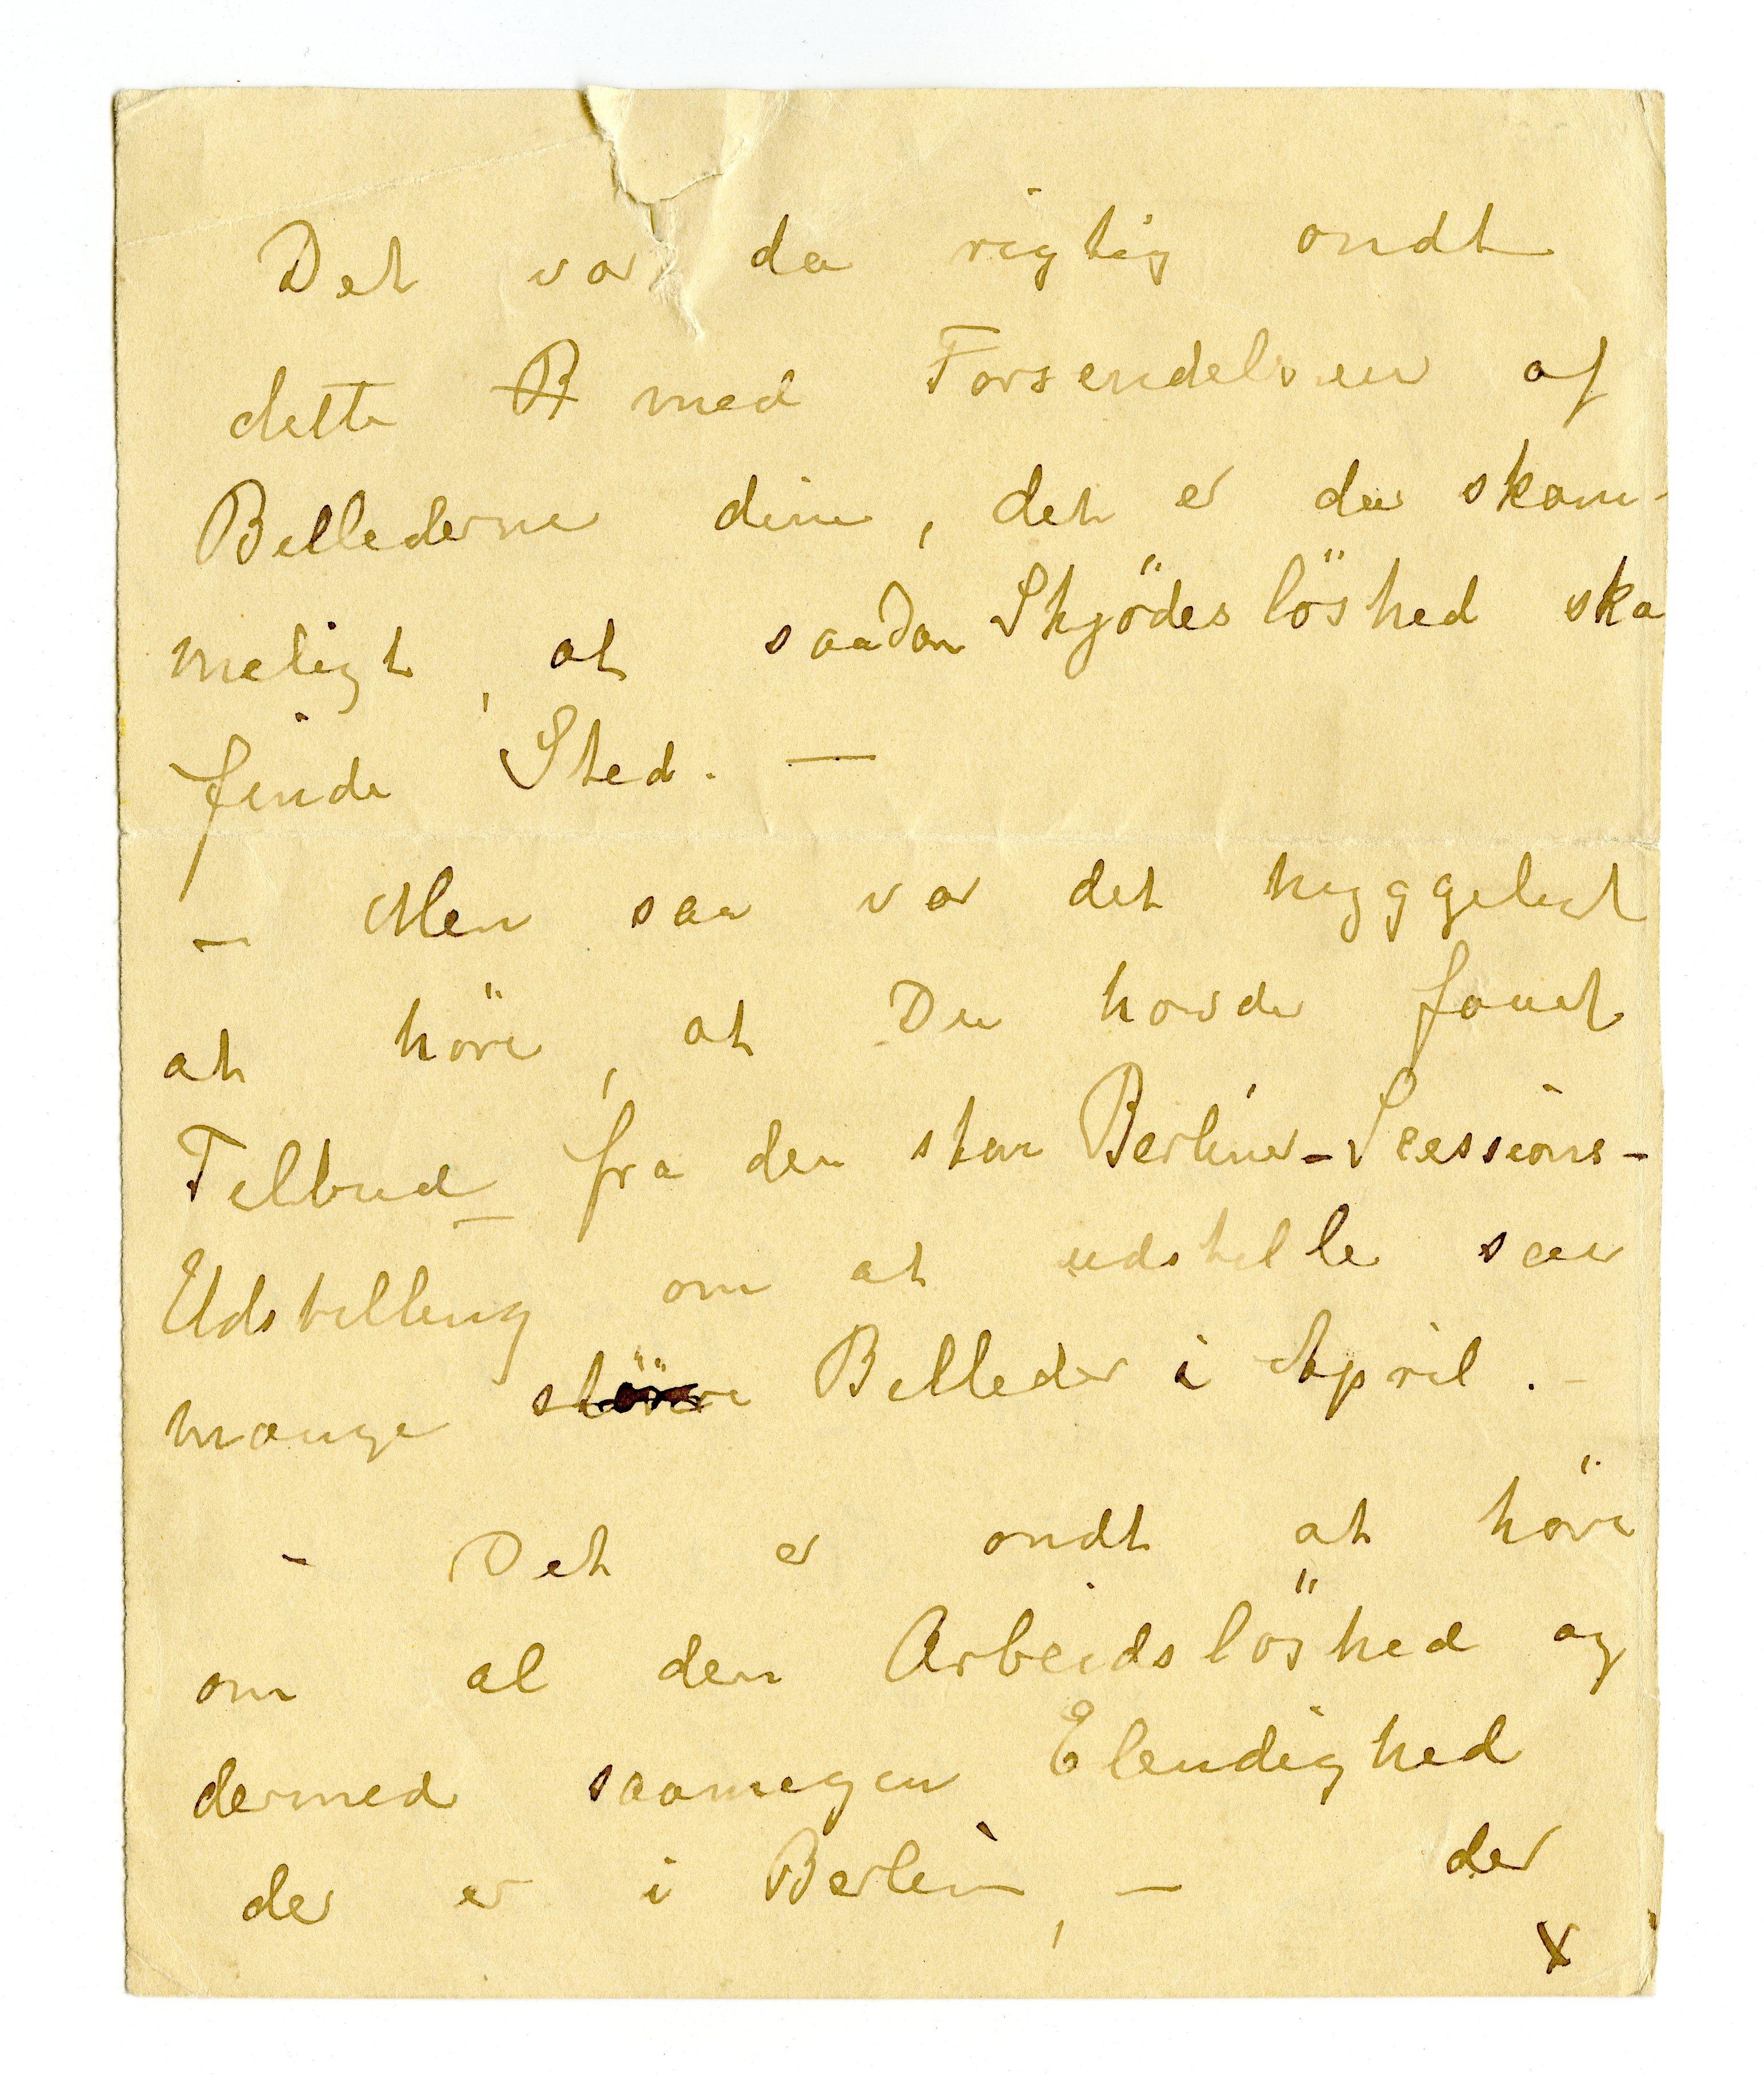 Det var da rigtig ondt
dette B med Forsendelsen af
Billederne dine, det er da skam-
meligt, at saadan Skjödeslöshed ska
finde Sted. —
— Men saa var det hyggeligt
at höre, at Du havde faaet
Tilbud fra den store Berliner-Scessions-
Udstilling om at udstille saa
mange störe Billeder i April. –
– Det er ondt at höre
om al den Arbeidslöshed og
dermed saamegen Elendighed
der er i Berlin, — der
x